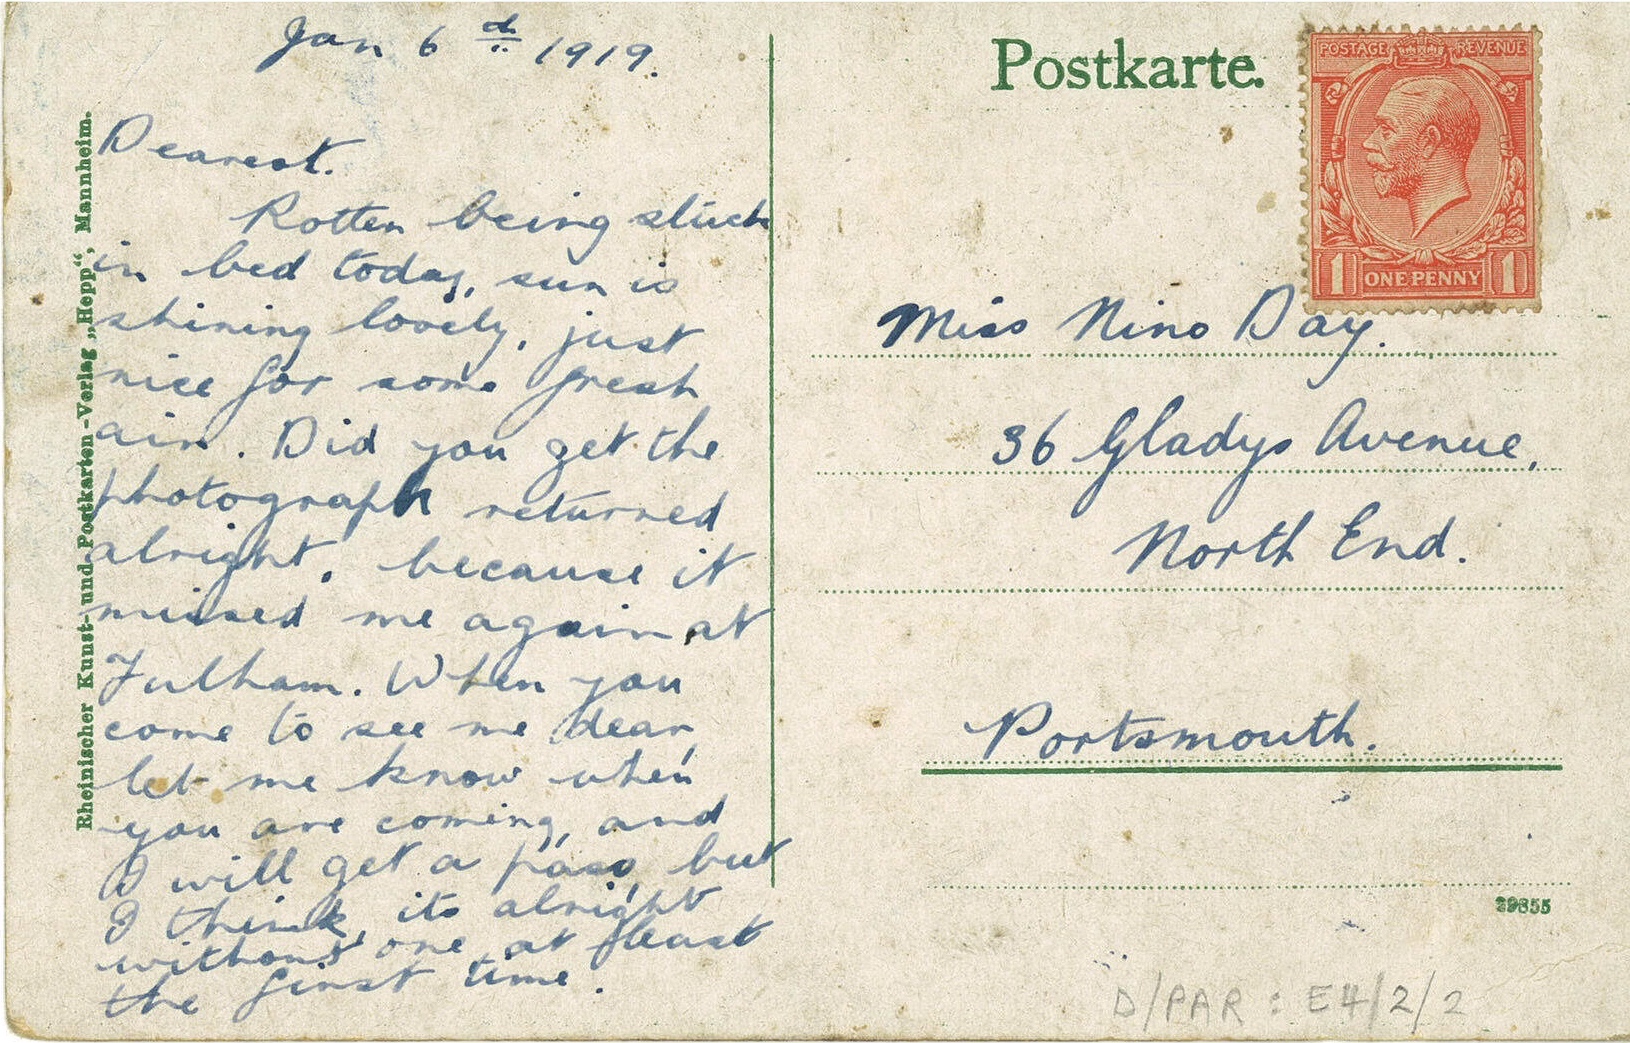 Jan 6th 1919.
Dearest.
Rotten being stuck
in bed today, sun is
shining lovely, just
nice for some fresh
air. Did you get the
photograph returned
alright, because it
missed me again at
Fulham. When you
come to see me dear,
let me know when
you are coming, and
I will get a pass, but
I think, its alright
without one, at least
the first time.
Rheinischer Kunst- und Postkarten-Verlag „Hepp“, Mannheim.
Postkarte.
POSTAGE REVENUE
1 ONE PENNY 1
Miss Nino Day.
36 Gladys Avenue,
North End.
Portsmouth.
29855
D/PAR : E4/2/2